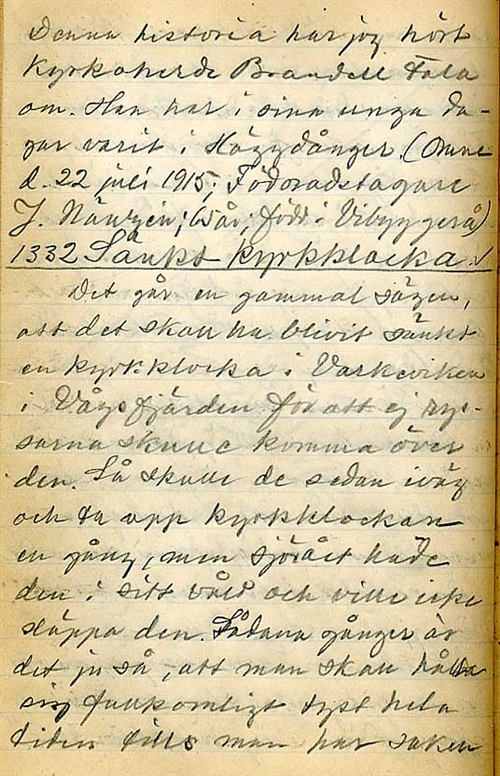 Denna historia har jag hört
kyrkoherde Brandell tala
om. Han har i sina unga da-
gar varit i Häggdånger. (
d. 22 juli 1915; Födorådstagare
J. Näszén; Wåv; född i Vibyggerå)
1332 Sänkt kyrkklocka.
Det går en gammal sägen,
att det skall ha blivit sänkt
en kyrkklocka i Varkeviken
i Vågsfjärden för att ej rys-
sarna skulle komma över
den. Så skulle de sedan iväg
och ta upp kyrkklockan
en gång, men sjörået hade
den i sitt våld och ville icke
släppa den. Sådana gånger är
det ju så, att man skall hålla
sig fullkomligt tyst hela
tiden tills man har saken